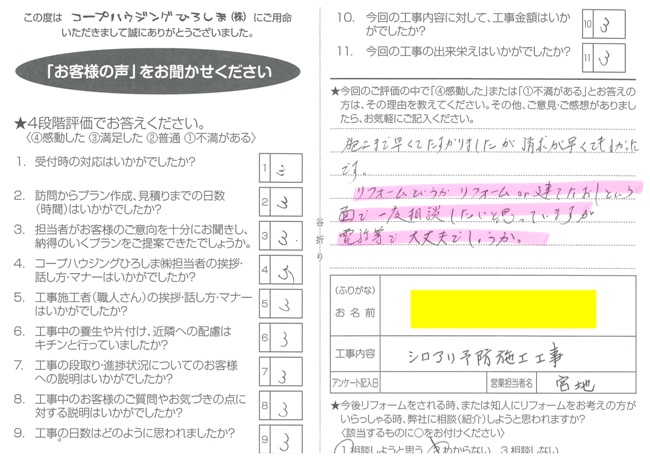 この度は コープハウジングひろしま(株) にご用命
いただきまして誠にありがとうございました。
「お客様の声」をお聞かせください
★4段階評価でお答えください。
〈④感動した ③満足した ②普通 ①不満がある〉
1. 受付時の対応はいかがでしたか?
1 3
2. 訪問からプラン作成、見積りまでの日数
(時間)はいかがでしたか?
2 3
3. 担当者がお客様のご意向を十分にお聞きし、
納得のいくプランをご提案できたでしょうか。
3 3
4. コープハウジングひろしま㈱担当者の挨拶・
話し方・マナーはいかがでしたか?
4 3
5. 工事施工者(職人さん)の挨拶・話し方・マナー
はいかがでしたか?
5 3
6. 工事中の養生や片付け、近隣への配慮は
キチンと行っていましたか?
6 3
7. 工事の段取り・進捗状況についてのお客様
への説明はいかがでしたか?
7 3
8. 工事中のお客様のご質問やお気づきの点に
対する説明はいかがでしたか?
8 3
9. 工事の日数はどのように思われましたか?
9 3
谷折り
10. 今回の工事内容に対して、工事金額はいか
がでしたか?
10 3
11. 今回の工事の出来栄えはいかがでしたか?
11 3
★今回のご評価の中で「④感動した」または「①不満がある」とお答えの
方は、その理由を教えてください。その他、ご意見・ご感想がありまし
たら、お気軽にご記入ください。
施工まで早くてたすかりましたが 請求が早くて
です。
リフォームというか リフォーム or 建てなおしという
面で一度相談したいと思っていますが
電話等で大丈夫でしょうか。
(ふりがな)
お名前
工事内容
シロアリ予防施工工事
アンケート記入日
営業担当者名
宮地
★今後リフォームをされる時、または知人にリフォームをお考えの方が
いらっしゃる時、弊社に相談(紹介)しようと思われますか?
〈該当するものに○をお付けください〉
1 相談しようと思う 2 わからない 3 相談しない